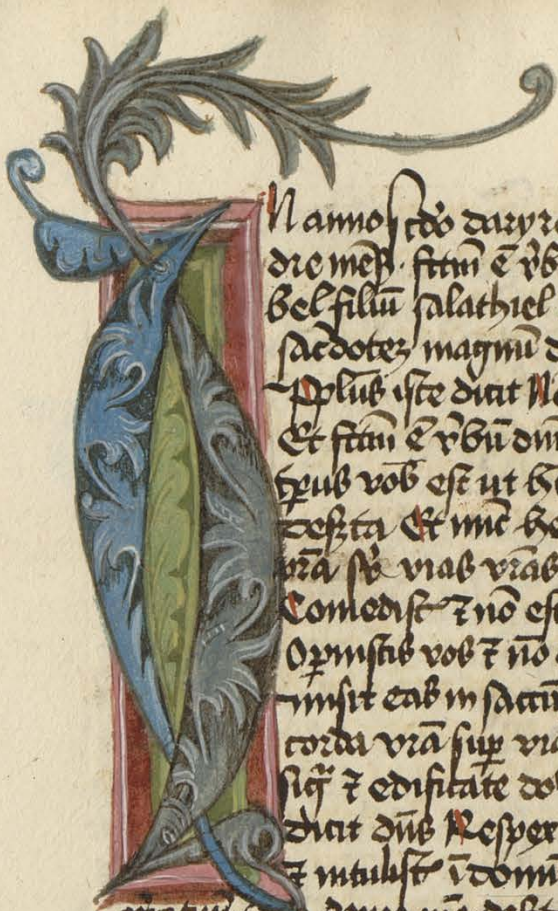 N anno scdo dary re
dre mēs. fctm ē v̄b
bel filiū salathiel
sacdotez magnū d
Pplus iste dicit No
Et fctm ē v̄bū dm
tpus vob est ut h
deserta Et nūc he
vrā sr vias vras
Comedist ⁊ nō es
Opuistis vos ⁊ nō
misit eas in saccū
corda vrā sup via
sicq ⁊ edificate do
dicit dns Respex
⁊ intulist ī domū